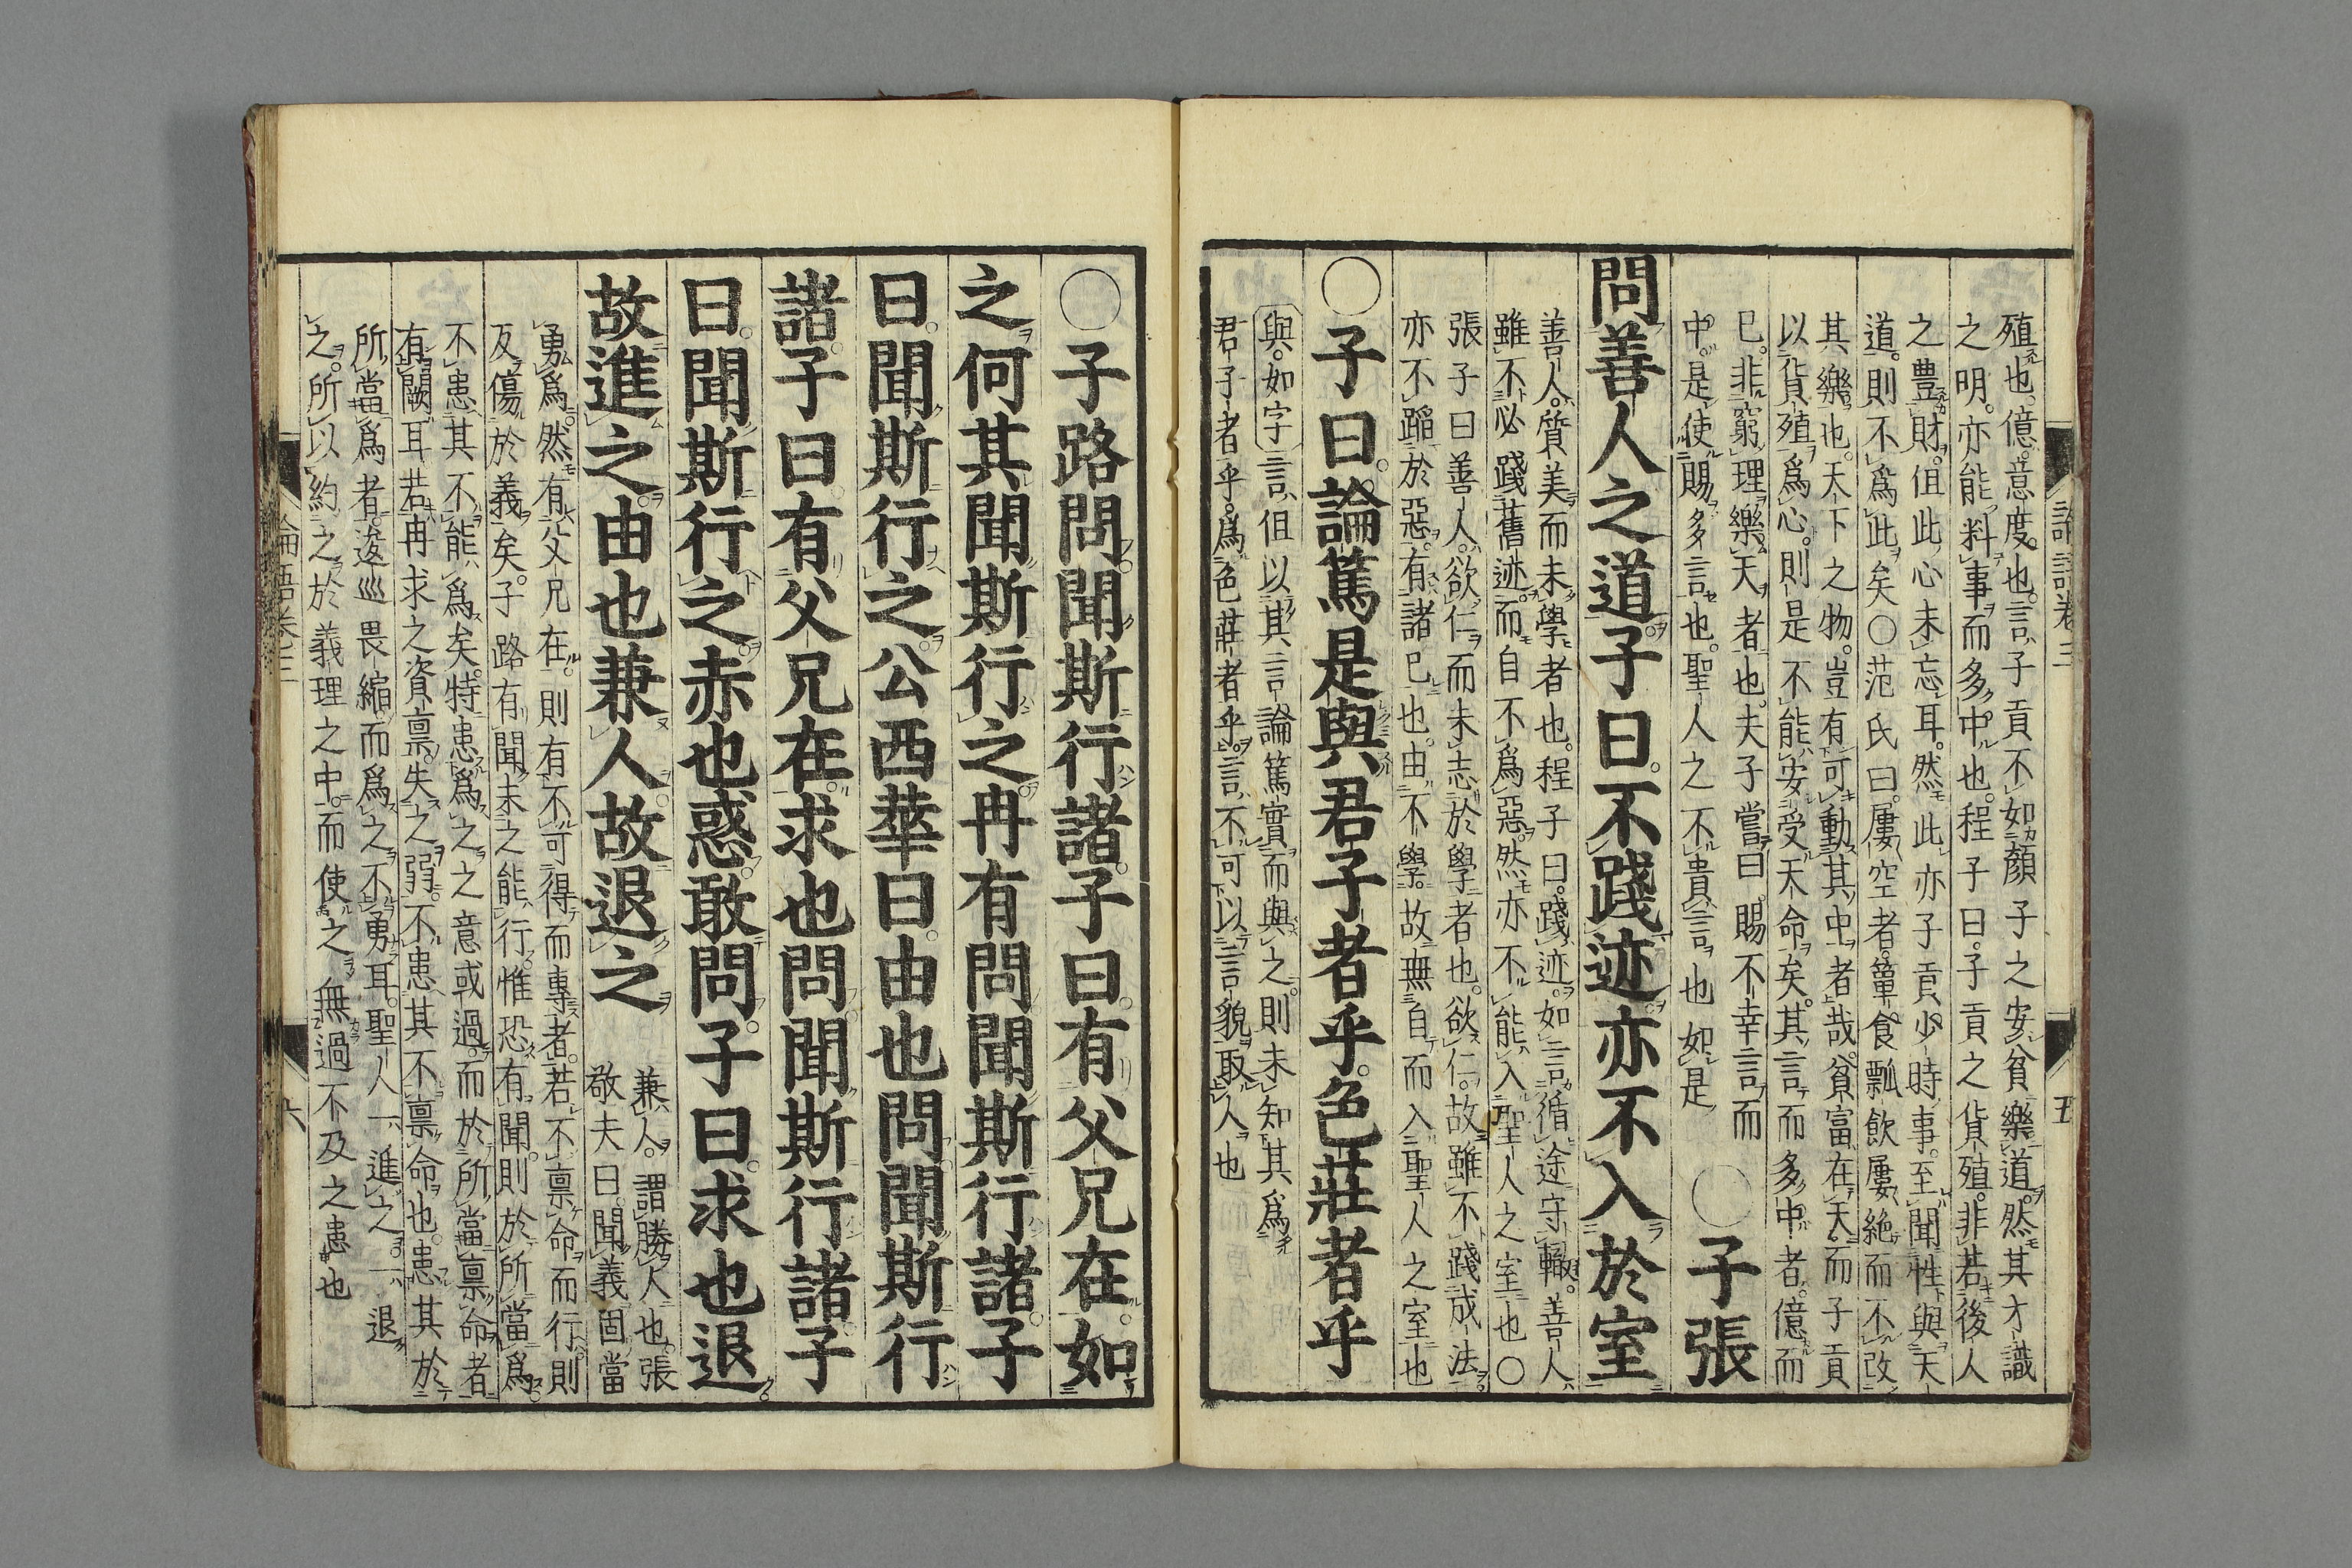 論語卷三　五
殖也億意度也言子貢不如顔子之安貧樂道然其才識
之明亦能料事而多中也程子曰子貢之貨殖非若後人
之豊財但此心未忘耳然此亦子貢少時事至聞性與天
道則不爲此矣○范氏曰屢空者簞食瓢飲屢絶而不改
其樂也天下之物豈有可動其中者哉貧富在天而子貢
以貨殖爲心則是不能安受天命矣其言而多中者億而
已非窮理樂天者也夫子嘗曰賜不幸言而
中是使賜多言也聖人之不貴言也如是
○子張
問善人之道子曰不踐迹亦不入於室
善人質美而未學者也程子曰踐迹如言循途守轍善人
雖不必踐舊迹而自不爲惡然亦不能入聖人之室也○
張子曰善人欲仁而未志於學者也欲仁故雖不踐成法
亦不蹈於惡有諸己也由不學故無自而入聖人之室也
○子曰論篤是與君子者乎色莊者乎
與如字言但以其言論篤實而與之則未知其爲
君子者乎爲色莊者乎言不可以言貌取人也
○子路問聞斯行諸子曰有父兄在如
之何其聞斯行之冉有問聞斯行諸子
曰聞斯行之公西華曰由也問聞斯行
諸子曰有父兄在求也問聞斯行諸子
曰聞斯行之赤也惑敢問子曰求也退
故進之由也兼人故退之
兼人謂勝人也張
敬夫曰聞義固當
勇爲然有父兄在則有不可得而專者若不稟命而行則
反傷於義矣子路有聞未之能行惟恐有聞則於所當爲
不患其不能爲矣特患爲之之意或過而於所當稟命者
有闕耳若冉求之資稟失之弱不患其不稟命也患其於
所當爲者逡巡畏縮而爲之不勇耳聖人一進之一退
之所以約之於義理之中而使之無過不及之患也
論語卷三　六